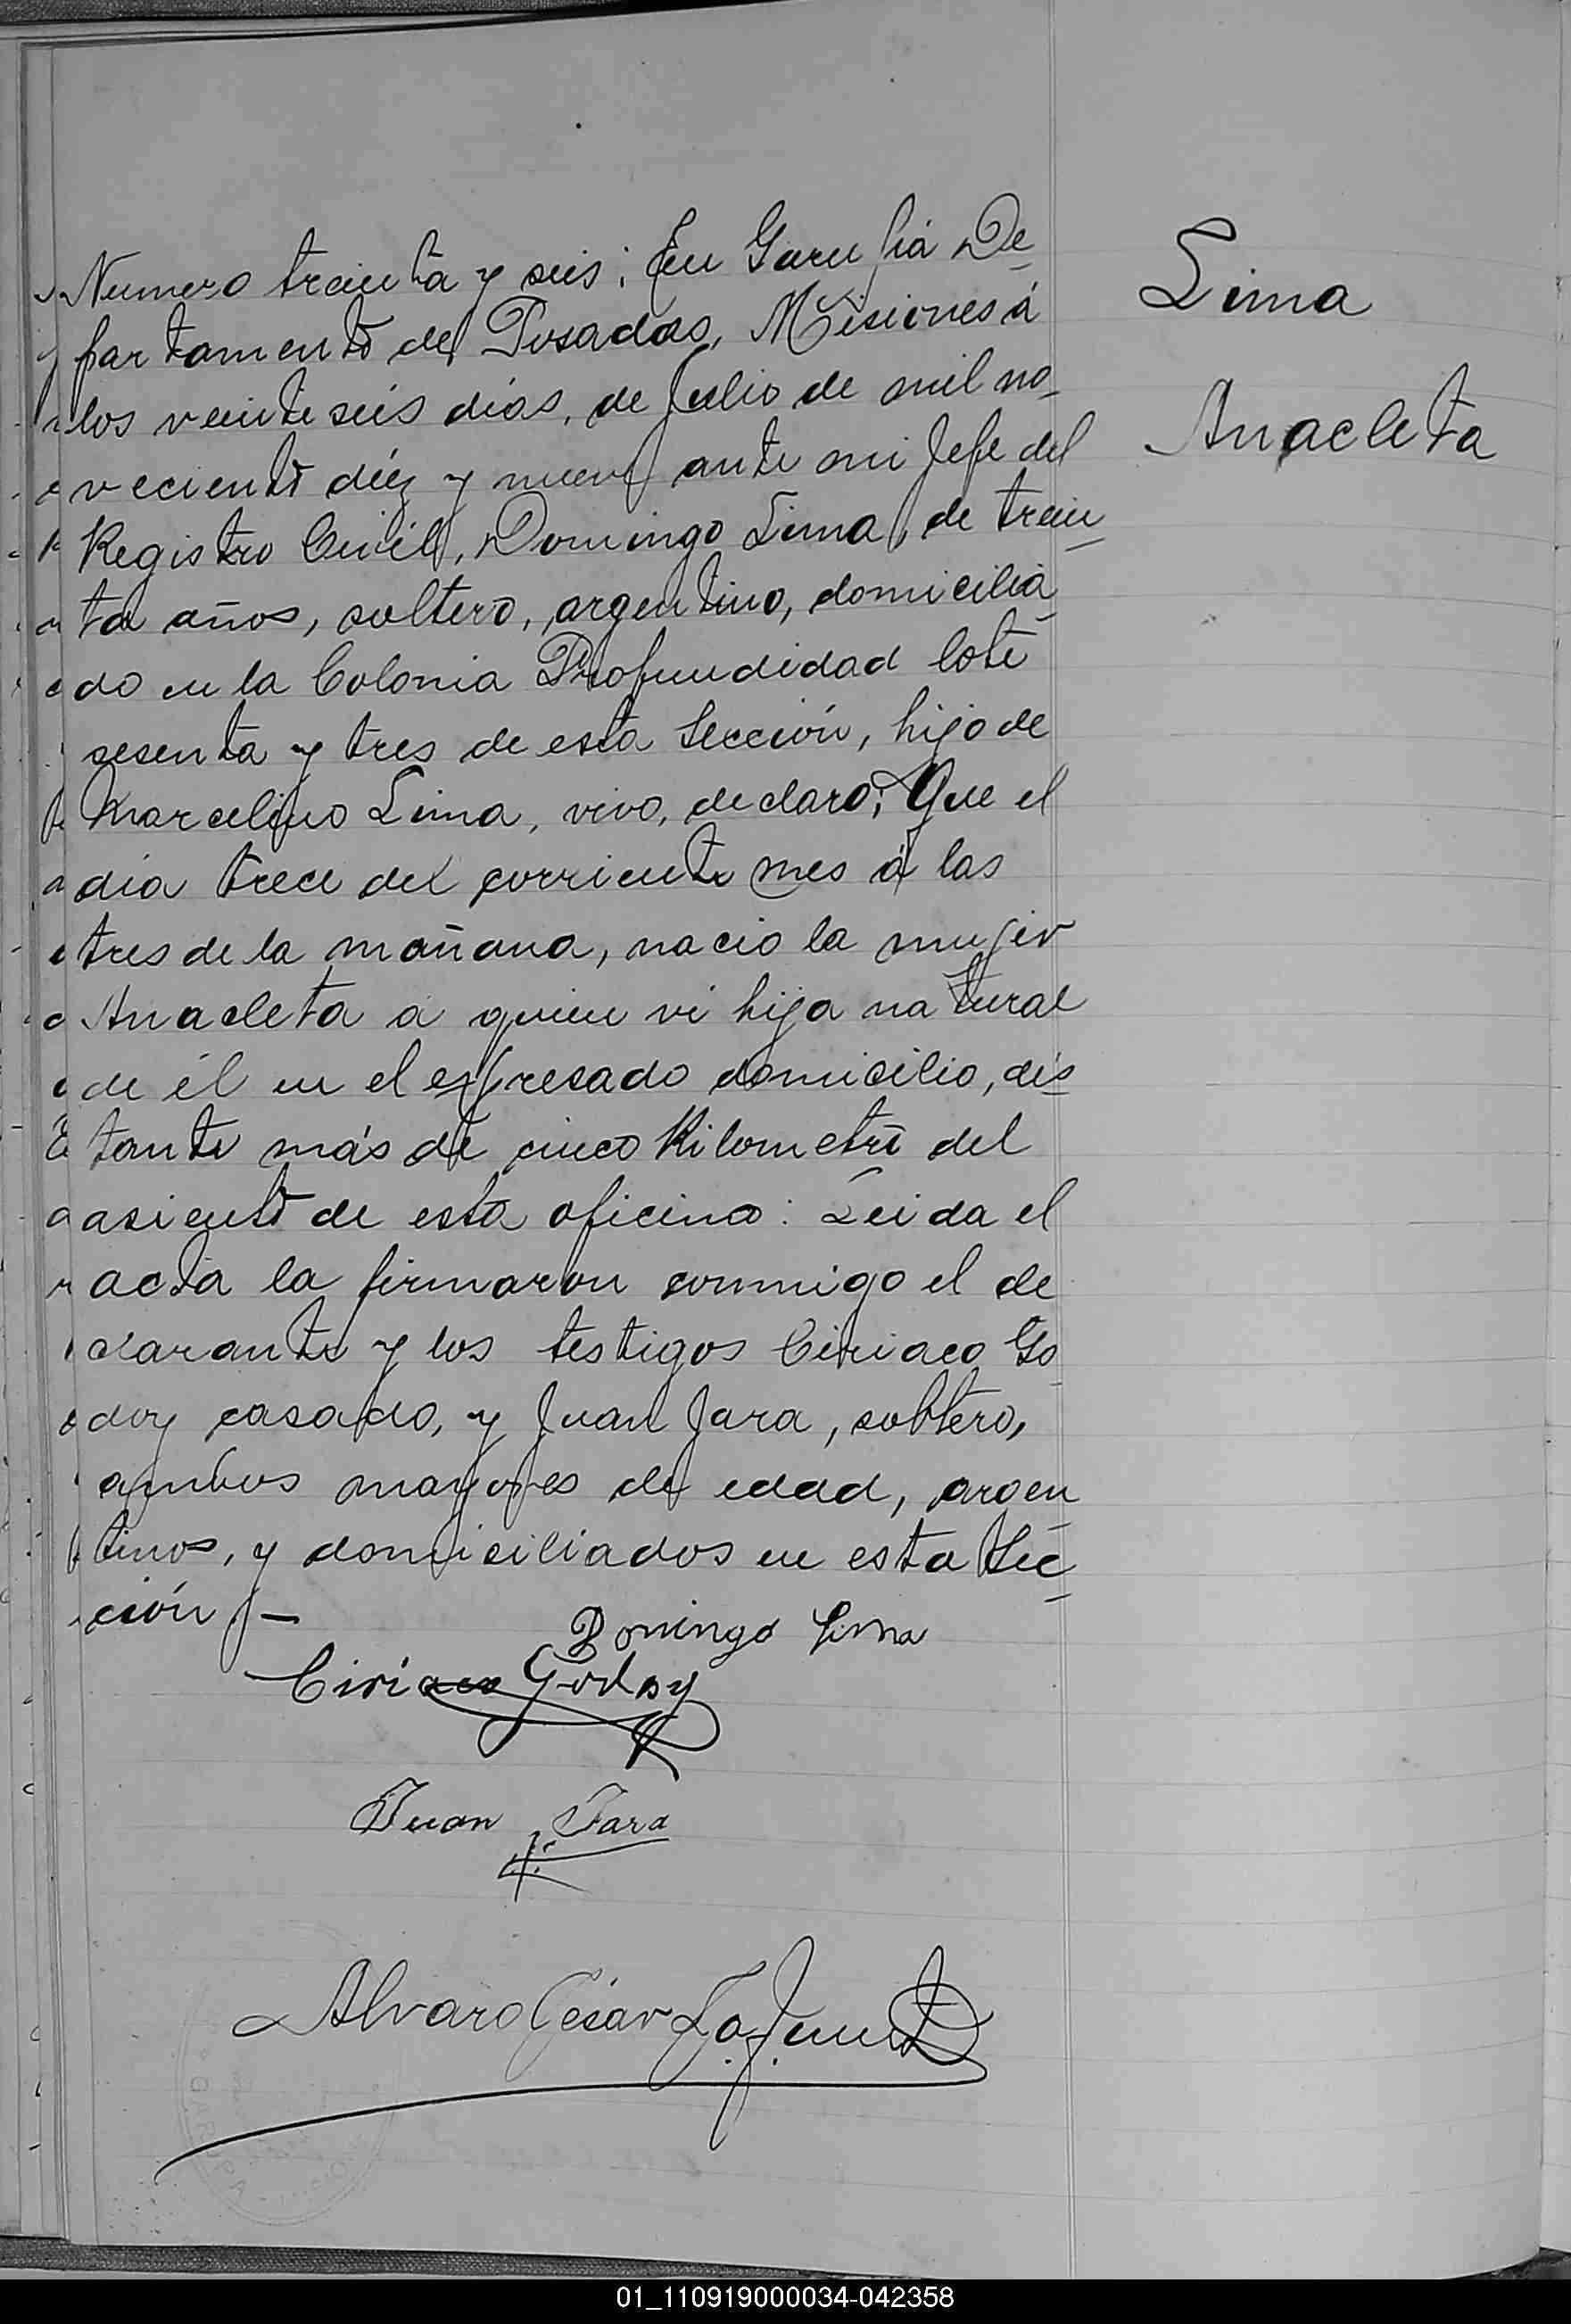 Numero treinta y seis: En Garupá De-
partamento de Posadas, Misiones á
los veinte seis días, de Julio de mil no-
veciento diéz y nueve ante mi Jefe del
Registro Civil, Domingo Lima, de trein-
ta años, soltero, argentino, domicilia-
do en la Colonia Profundidad lote
sesenta y tres de esta Sección, hijo de
Marcelino Lima, vivo, declaro; Que el
día trece del corriente mes á las
tres de la mañana, nacio la mujer
Anacleta a quien vi hija natural
de él en el espresado domicilio, dis-
tante más de cinco Kilometro del
asiento de esta oficina: Leida el
acta la firmaron conmigo el de
clarante y los testigos Ciriaco Go-
doy casado, y Juan Jara, soltero,
ambos mayores de edad, argen
tinos, y domiciliados en esta Sec-
ción —
Domingo Lima
Ciriaco Godoy
Juan Jara
Alvaro César
Lima
Anacleta
GARUPA
01_110919000034-042358